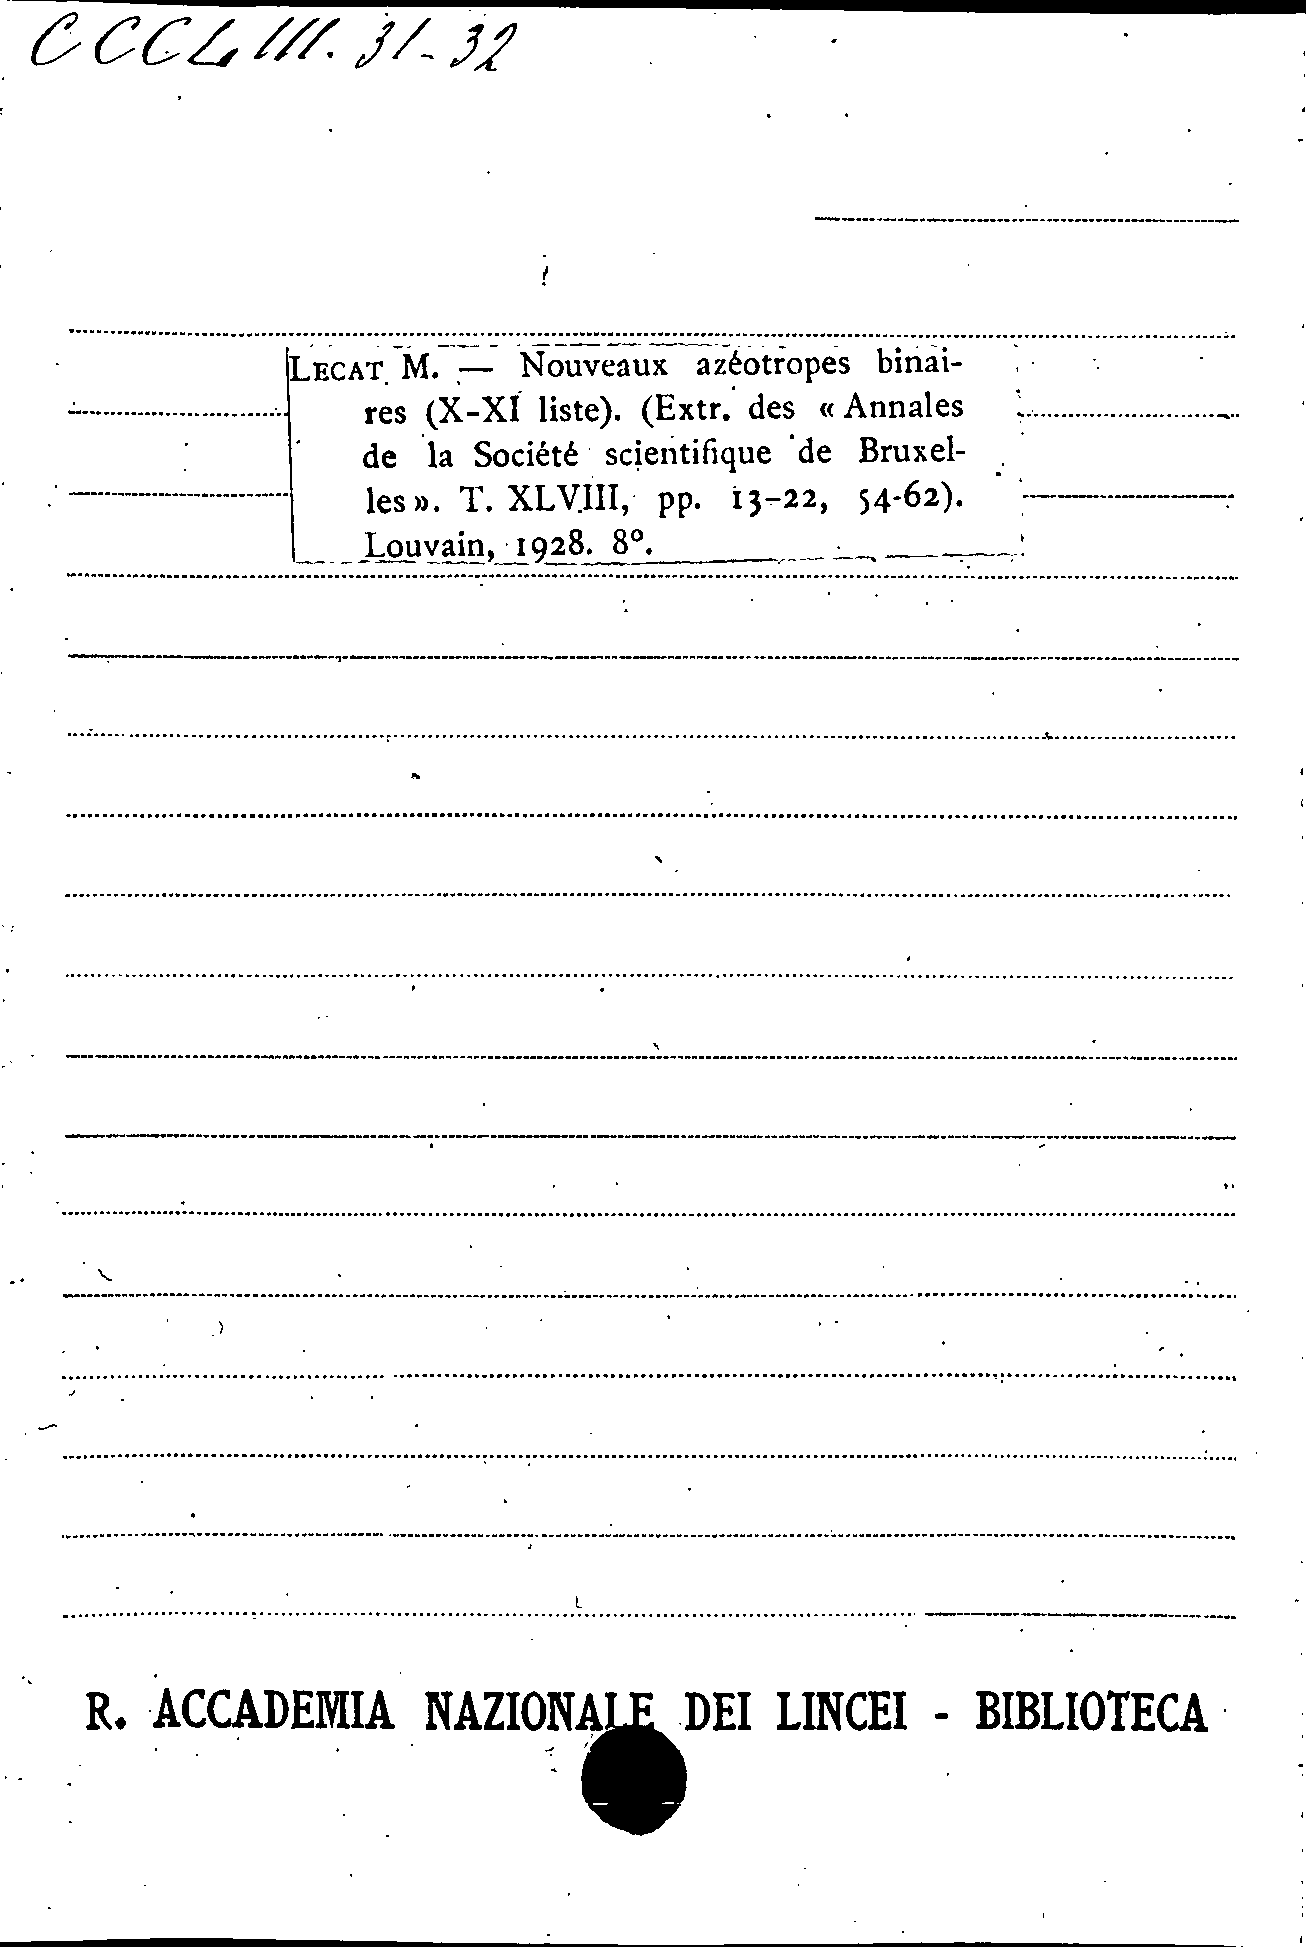 CCCLIII. 31-32
LECAT M. — Nouveaux azéotropes binai-
res (X-XI liste). (Extr. des « Annales
de la Société scientifique de Bruxel-
les ». T. XLVIII, pp. 13-22, 54-62).
Louvain, 1928. 8º.
R. ACCADEMIA NAZIONALE DEI LINCEI - BIBLIOTECA